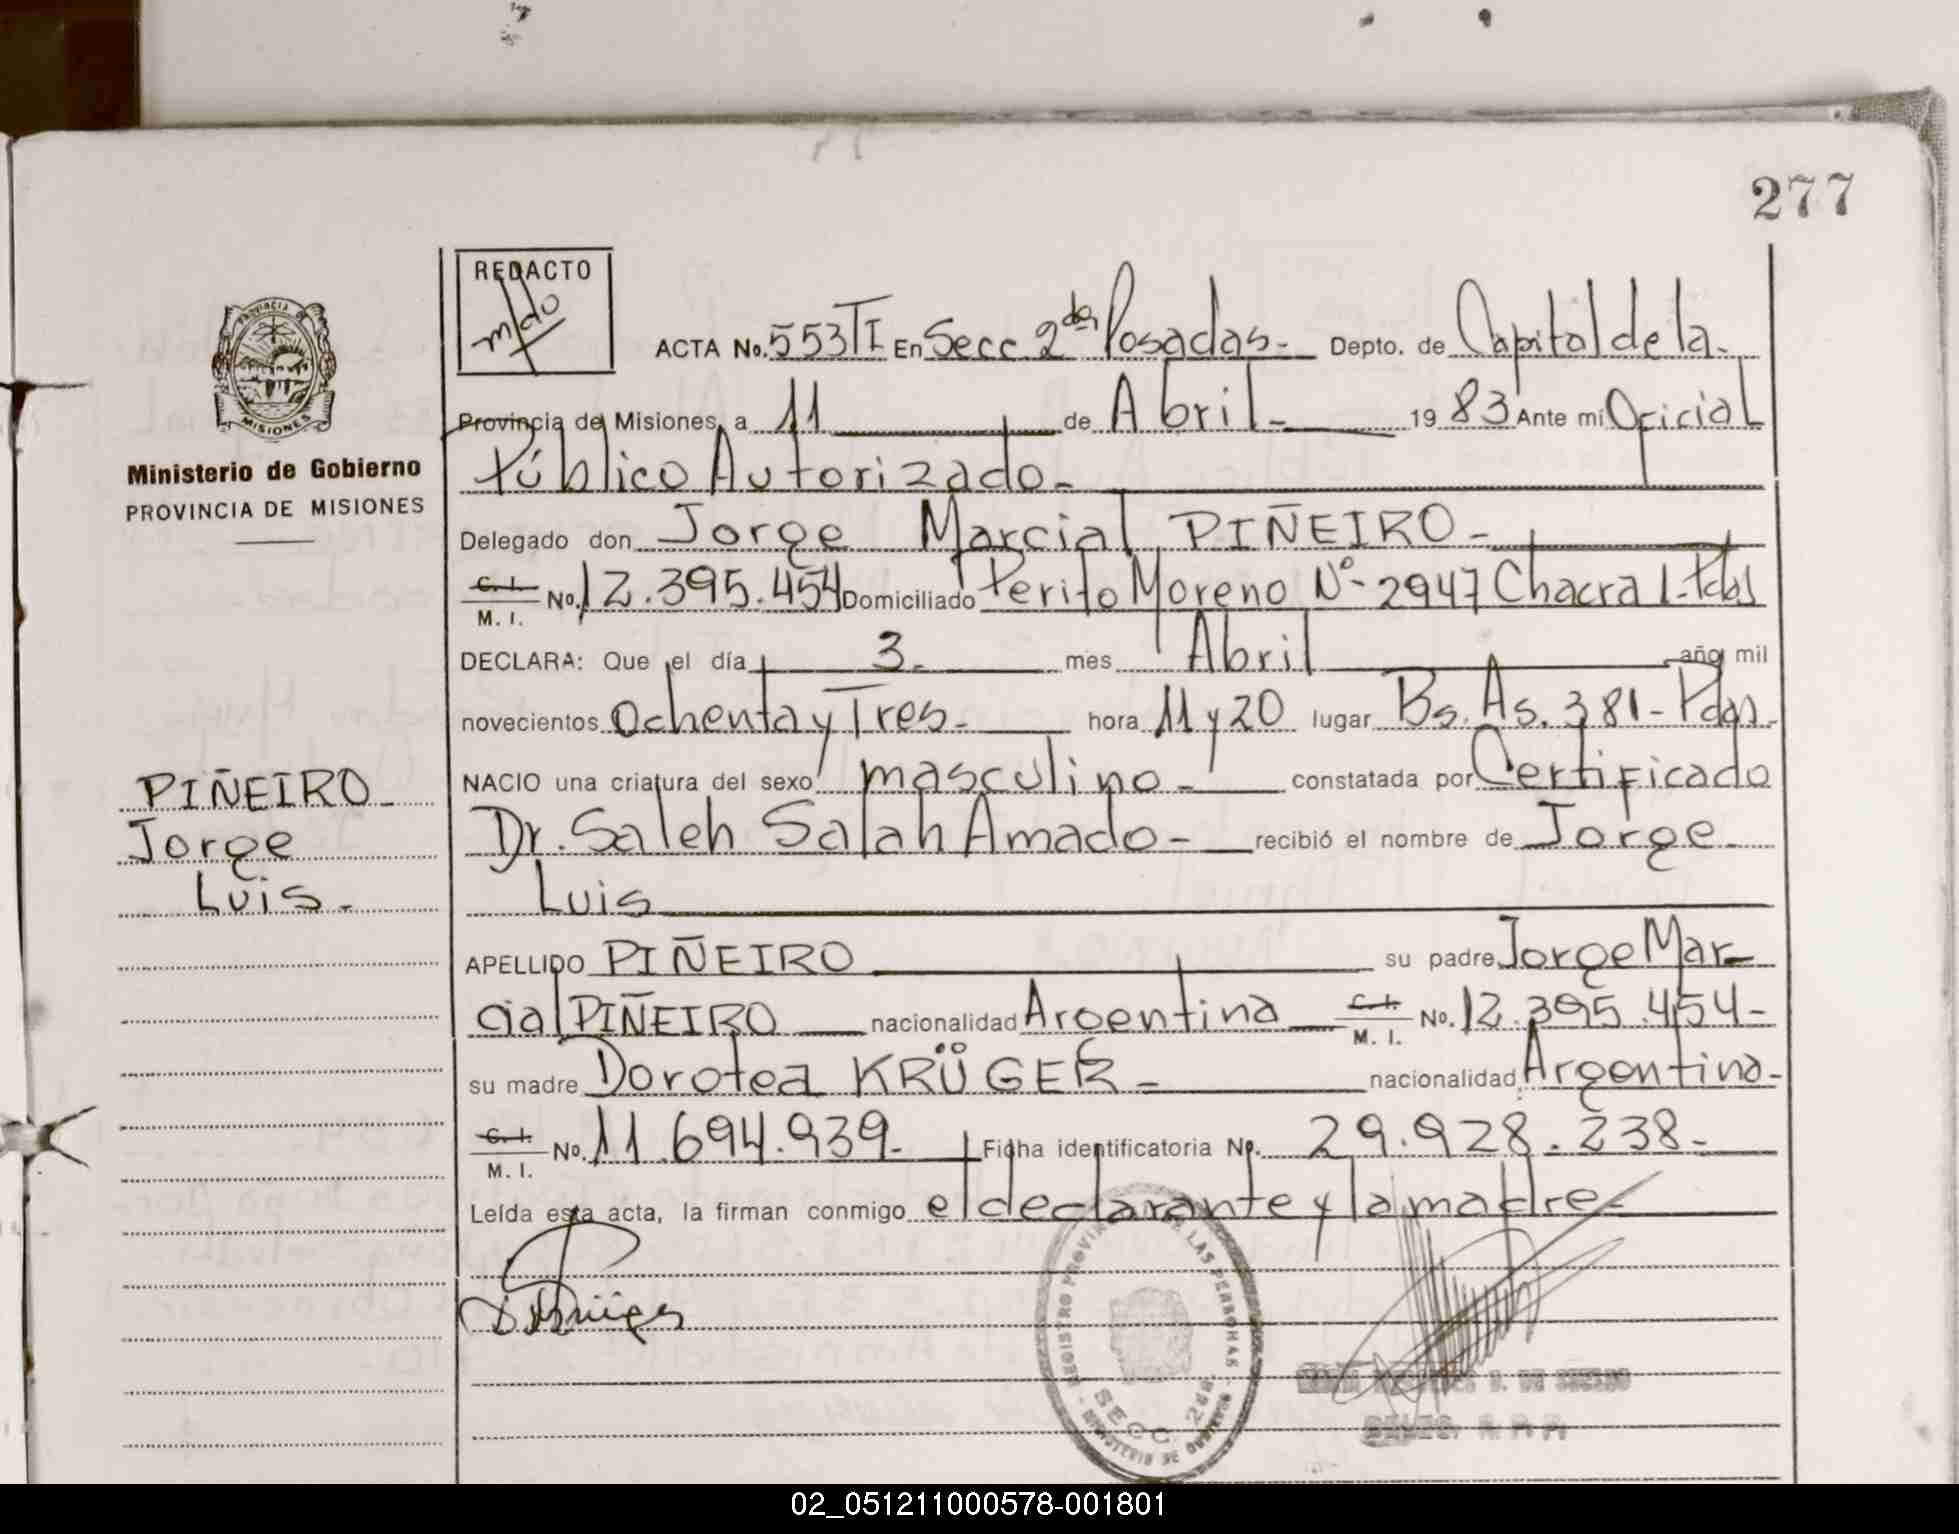 277
REDACTO
m/do
ACTA No. 553 TI En Secc 2da Posadas- Depto. de Capital de la-
Provincia de Misiones, a 11 de Abril- 1983 Ante mi Oficial
Público Autorizado-
Delegado don Jorge Marcial PIÑEIRO-
C. I. / M. I. No. 12.395.454 Domiciliado Perito Moreno Nº- 2947 Chacra 1-Pdas
DECLARA: Que el día 3- mes Abril año mil
novecientos Ochenta y Tres- hora 11 y 20 lugar Bs. As. 381- Pdas-
NACIO una criatura del sexo masculino- constatada por Certificado
Dr. Saleh Salah Amado- recibió el nombre de Jorge
Luis
APELLIDO PIÑEIRO su padre Jorge Mar-
cial PIÑEIRO nacionalidad Argentina C. I. / M. I. No. 12.395.454-
su madre Dorotea KRÜGER- nacionalidad Argentina-
C. I. / M. I. No. 11.694.939- Ficha identificatoria No. 29.928.238-
Leída esta acta, la firman conmigo el declarante y la madre-
PROVINCIA DE
MISIONES
Ministerio de Gobierno
PROVINCIA DE MISIONES
PIÑEIRO-
Jorge
Luis-
REGISTRO PROVINCIAL DE LAS PERSONAS
SECC. 2da.
MINISTERIO DE GOBIERNO
DELEG. R. P. P.
02_051211000578-001801